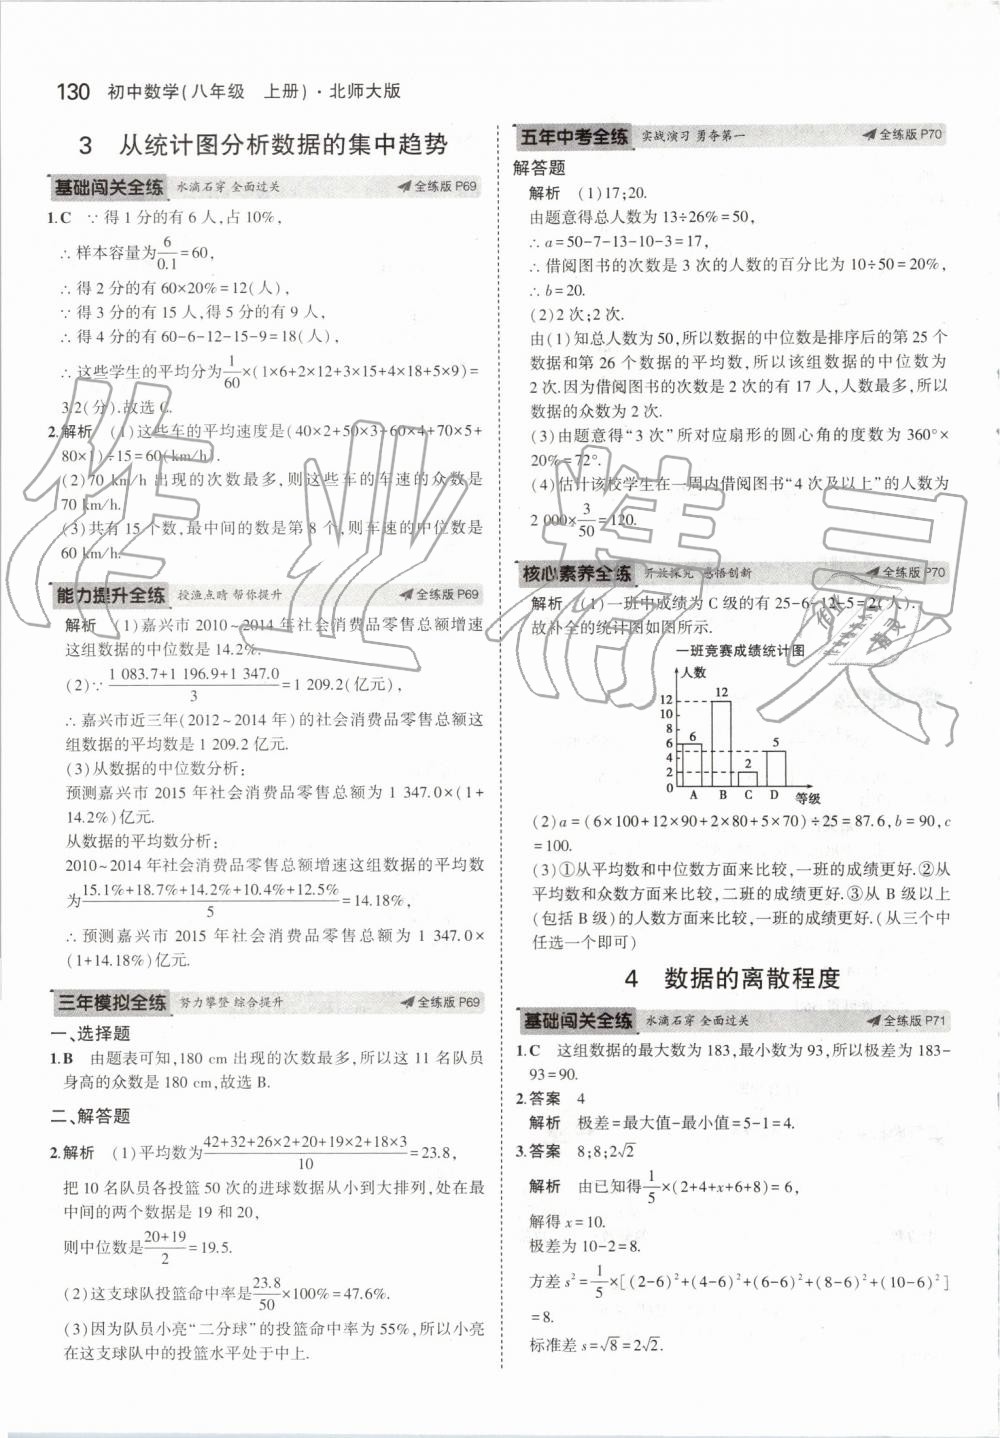 130 初中数学(八年级 上册)·北师大版
3 从统计图分析数据的集中趋势
基础闯关全练 水滴石穿 全面过关 全练版 P69
1.C ∵得1分的有6人,占10%,
∴样本容量为6/0.1=60,
∴得2分的有60×20%=12(人),
∵得3分的有15人,得5分的有9人,
∴得4分的有60-6-12-15-9=18(人),
∴这些学生的平均分为1/60×(1×6+2×12+3×15+4×18+5×9)=
3.2(分).故选C.
2.解析 (1)这些车的平均速度是(40×2+50×3+60×4+70×5+
80×1)÷15=60(km/h).
(2)70 km/h出现的次数最多,则这些车的车速的众数是
70 km/h.
(3)共有15个数,最中间的数是第8个,则车速的中位数是
60 km/h.
能力提升全练 投渔点睛 帮你提升 全练版 P69
解析 (1)嘉兴市2010~2014年社会消费品零售总额增速
这组数据的中位数是14.2%.
(2)∵(1 083.7+1 196.9+1 347.0)/3=1 209.2(亿元),
∴嘉兴市近三年(2012~2014年)的社会消费品零售总额这
组数据的平均数是1 209.2亿元.
(3)从数据的中位数分析:
预测嘉兴市2015年社会消费品零售总额为1 347.0×(1+
14.2%)亿元.
从数据的平均数分析:
2010~2014年社会消费品零售总额增速这组数据的平均数
为(15.1%+18.7%+14.2%+10.4%+12.5%)/5=14.18%,
∴预测嘉兴市2015年社会消费品零售总额为1 347.0×
(1+14.18%)亿元.
三年模拟全练 努力攀登 综合提升 全练版 P69
一、选择题
1.B 由题表可知,180 cm出现的次数最多,所以这11名队员
身高的众数是180 cm,故选B.
二、解答题
2.解析 (1)平均数为(42+32+26×2+20+19×2+18×3)/10=23.8,
把10名队员各投篮50次的进球数据从小到大排列,处在最
中间的两个数据是19和20,
则中位数是(20+19)/2=19.5.
(2)这支球队投篮命中率是23.8/50×100%=47.6%.
(3)因为队员小亮“二分球”的投篮命中率为55%,所以小亮
在这支球队中的投篮水平处于中上.
五年中考全练 实战演习 勇夺第一 全练版 P70
解答题
解析 (1)17;20.
由题意得总人数为13÷26%=50,
∴a=50-7-13-10-3=17,
∴借阅图书的次数是3次的人数的百分比为10÷50=20%,
∴b=20.
(2)2次;2次.
由(1)知总人数为50,所以数据的中位数是排序后的第25个
数据和第26个数据的平均数,所以该组数据的中位数为
2次.因为借阅图书的次数是2次的有17人,人数最多,所以
数据的众数为2次.
(3)由题意得“3次”所对应扇形的圆心角的度数为360°×
20%=72°.
(4)估计该校学生在一周内借阅图书“4次及以上”的人数为
2 000×3/50=120.
核心素养全练 开放探究 感悟创新 全练版 P70
解析 (1)一班中成绩为C级的有25-6-12-5=2(人).
故补全的统计图如图所示.
一班竞赛成绩统计图
人数
12
10
8
6
4
2
0
6 12 2 5
A B C D 等级
(2)a=(6×100+12×90+2×80+5×70)÷25=87.6,b=90,c
=100.
(3)①从平均数和中位数方面来比较,一班的成绩更好.②从
平均数和众数方面来比较,二班的成绩更好.③从B级以上
(包括B级)的人数方面来比较,一班的成绩更好.(从三个中
任选一个即可)
4 数据的离散程度
基础闯关全练 水滴石穿 全面过关 全练版 P71
1.C 这组数据的最大数为183,最小数为93,所以极差为183-
93=90.
2.答案 4
解析 极差=最大值-最小值=5-1=4.
3.答案 8;8;2√2
解析 由已知得1/5×(2+4+x+6+8)=6,
解得x=10.
极差为10-2=8.
方差s²=1/5×[(2-6)²+(4-6)²+(6-6)²+(8-6)²+(10-6)²]
=8.
标准差s=√8=2√2.
作业精灵